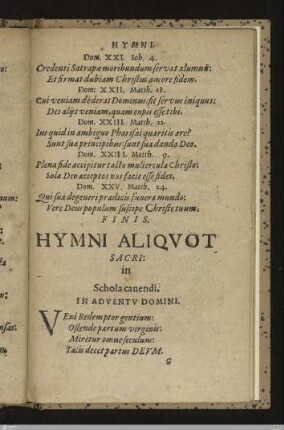 HYMNI.
Dom. XXI. Ioh. 4.
Credenti Satrapæ moribundum servat alumnũ:
Et firmat dubiam Christus, amore fidem.
Dom. XXII. Matth. 18.
Cui veniam dederat Dominus, fit servus iniquus:
Des alijs veniam, quam cupis esse tibi.
Dom. XXIII. Matth. 22.
Ius quid in ambiguo Pharisæi quæritis ære?
Sunt sua principibus: sunt sua danda Deo.
Dom. XXIIII. Matth. 9.
Plena fide accipitur tacto muliercula Christo:
Sola Deo acceptos nos facit esse fides.
Dom. XXV. Matth. 24.
Qui sua degeneri prædicis funera mundo:
Vere Deus populum suscipe Christe tuum.
FINIS.
HYMNI ALIQVOT
SACRI:
in
Schola canendi.
IN ADVENTV DOMINI.
VEni Redemptor gentium:
Ostende partum virginis:
Miretur omne seculum:
Talis decet partus DEVM.
G